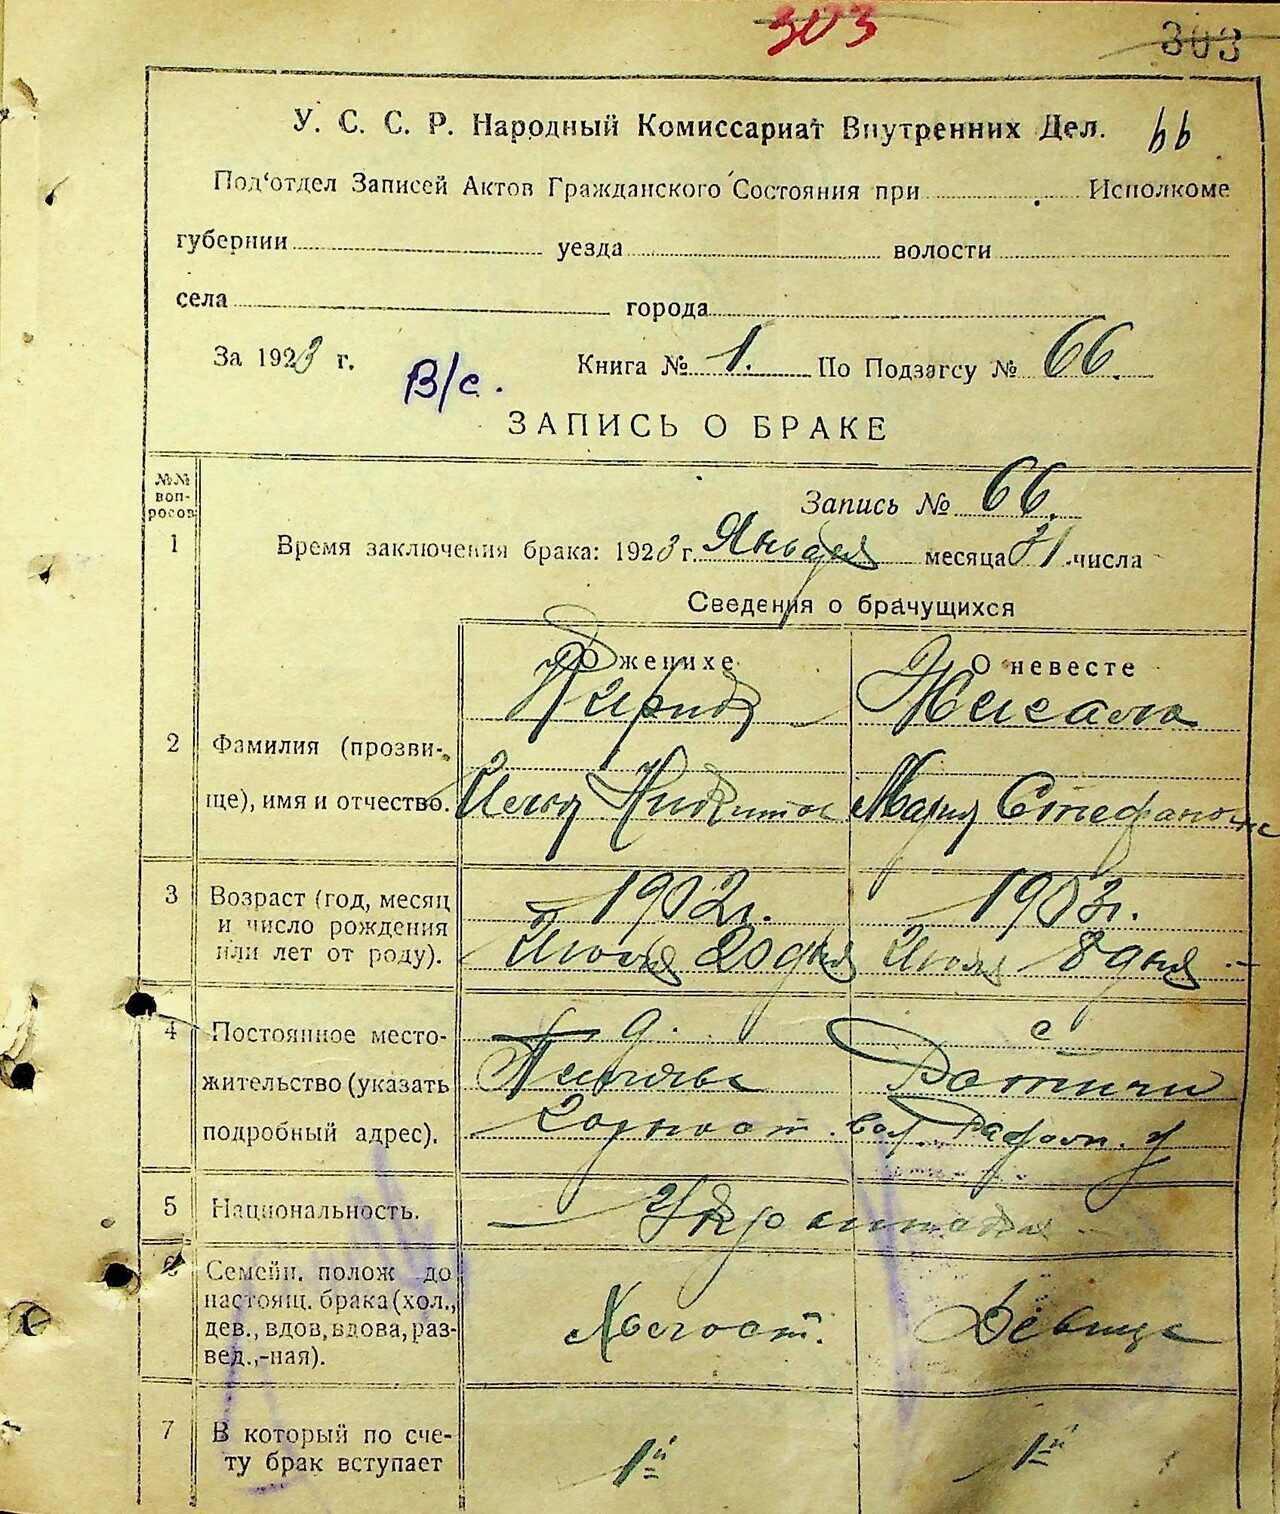 303
303
У. С. С. Р. Народный Комиссариат Внутренних Дел. 66
Под‘отдел Записей Актов Гражданского Состояния при Исполкоме
губернии уезда волости
села города
За 1923 г. Книга № 1. По Подзагсу № 66.
В/с.
ЗАПИСЬ О БРАКЕ
№№ воп-росов
Запись № 66.
1 Время заключения брака: 1923 г. Января месяца 31 числа
Сведения о брачущихся
О женихе О невесте
2 Фамилия (прозви-
ще), имя и отчество. Илья Никитов Мария Стефановна
3 Возраст (год, месяц 1902г. 1903г.
и число рождения Июля 20 дня Июля 8 дня
или лет от роду).
4 Постоянное место- д. с
жительство (указать
подробный адрес). вол.
5 Национальность.
6 Семейн. полож до
настоящ. брака (хол.,
дев., вдов, вдова, раз- Холост. Девица
вед.,-ная).
7 В который по сче- 1й 1й
ту брак вступает